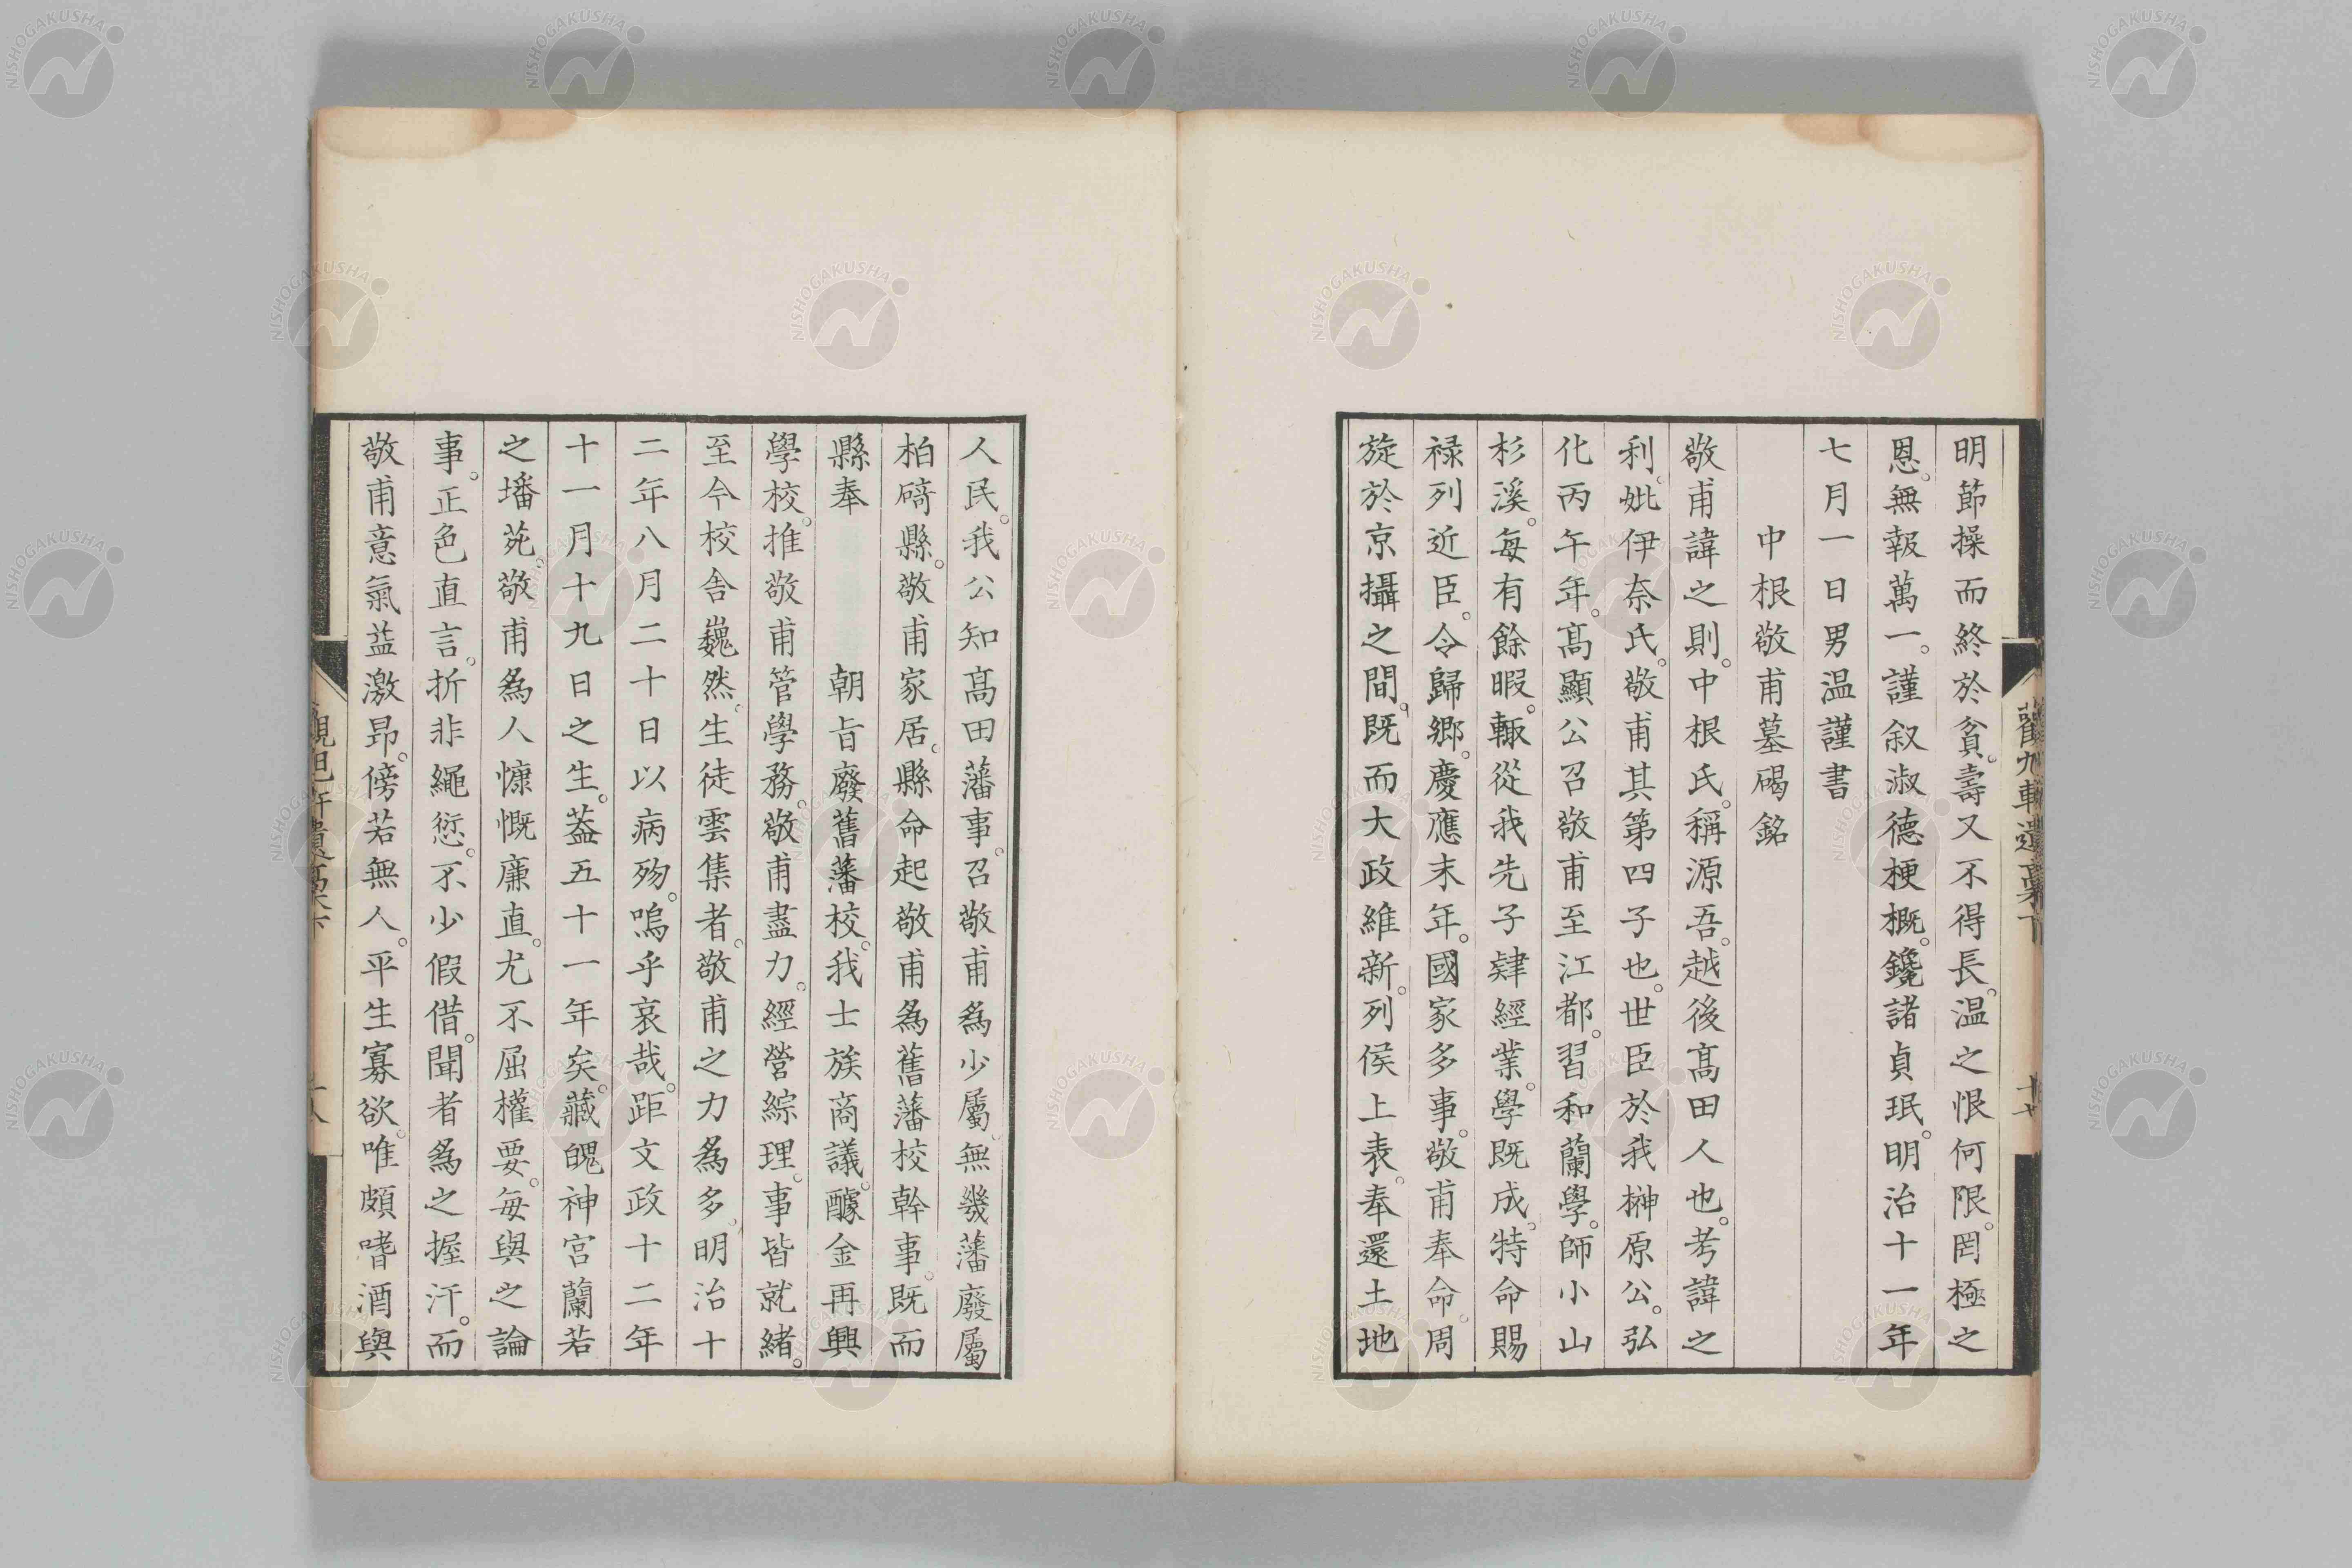 明節操而終於貧。壽又不得長。温之恨何限。罔極之
恩。無報萬一。謹叙淑德梗概。鑱諸貞珉。明治十一年
七月一日男温謹書
中根敬甫墓碣銘
敬甫諱之則。中根氏。稱源吾。越後髙田人也。考諱之
利。妣伊奈氏。敬甫其第四子也。世臣於我榊原公。弘
化丙午年。髙顯公召敬甫至江都。習和蘭學。師小山
杉溪。每有餘暇。輙從我先子肄經業。學既成。特命賜
禄列近臣。令歸鄉。慶應末年。國家多事。敬甫奉命。周
旋於京攝之間。既而大政維新。列侯上表。奉還土地
人民。我公知髙田藩事。召敬甫爲少屬。無幾藩廢屬
柏﨑縣。敬甫家居。縣命起敬甫爲舊藩校幹事。既而
縣奉朝旨廢舊藩校。我士族商議。醵金再興
學校。推敬甫管學務。敬甫盡力。經營綜理。事皆就緒。
至今校舍巍然。生徒雲集者。敬甫之力爲多。明治十
二年八月二十日以病歿。嗚乎哀哉。距文政十二年
十一月十九日之生。葢五十一年矣。藏魄神宮蘭若
之墦苑。敬甫爲人慷慨廉直。尤不屈權要。每與之論
事。正色直言。折非繩愆。不少假借。聞者爲之握汗。而
敬甫意氣益激昂。傍若無人。平生寡欲。唯頗嗜酒與